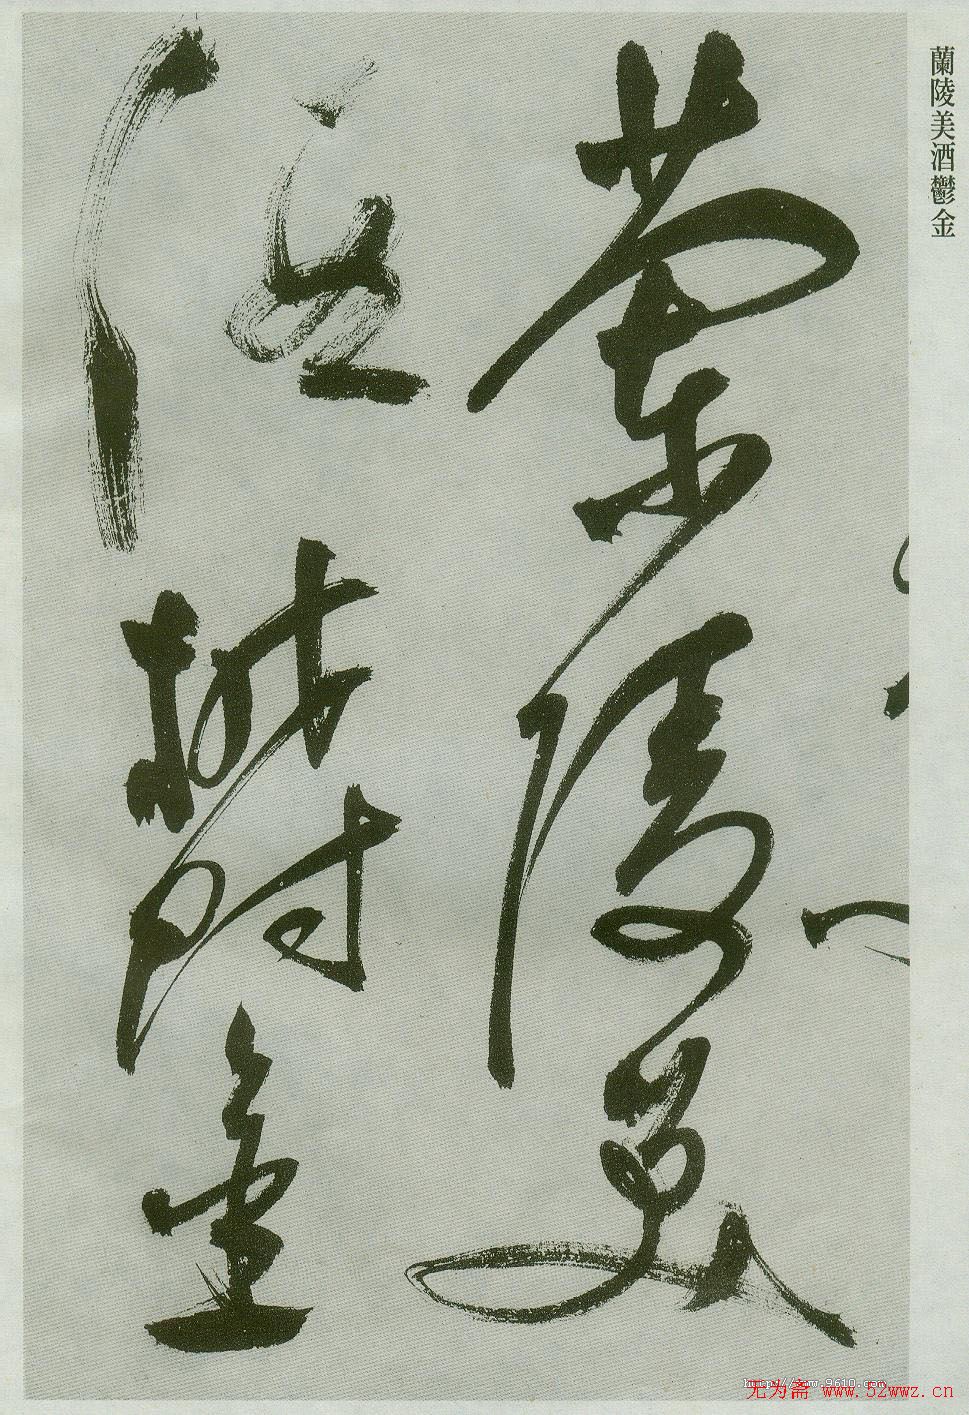 蘭陵美酒鬱金
蘭陵美
酒鬱金
http://www.9610.com
无为斋 www.52wwz.cn